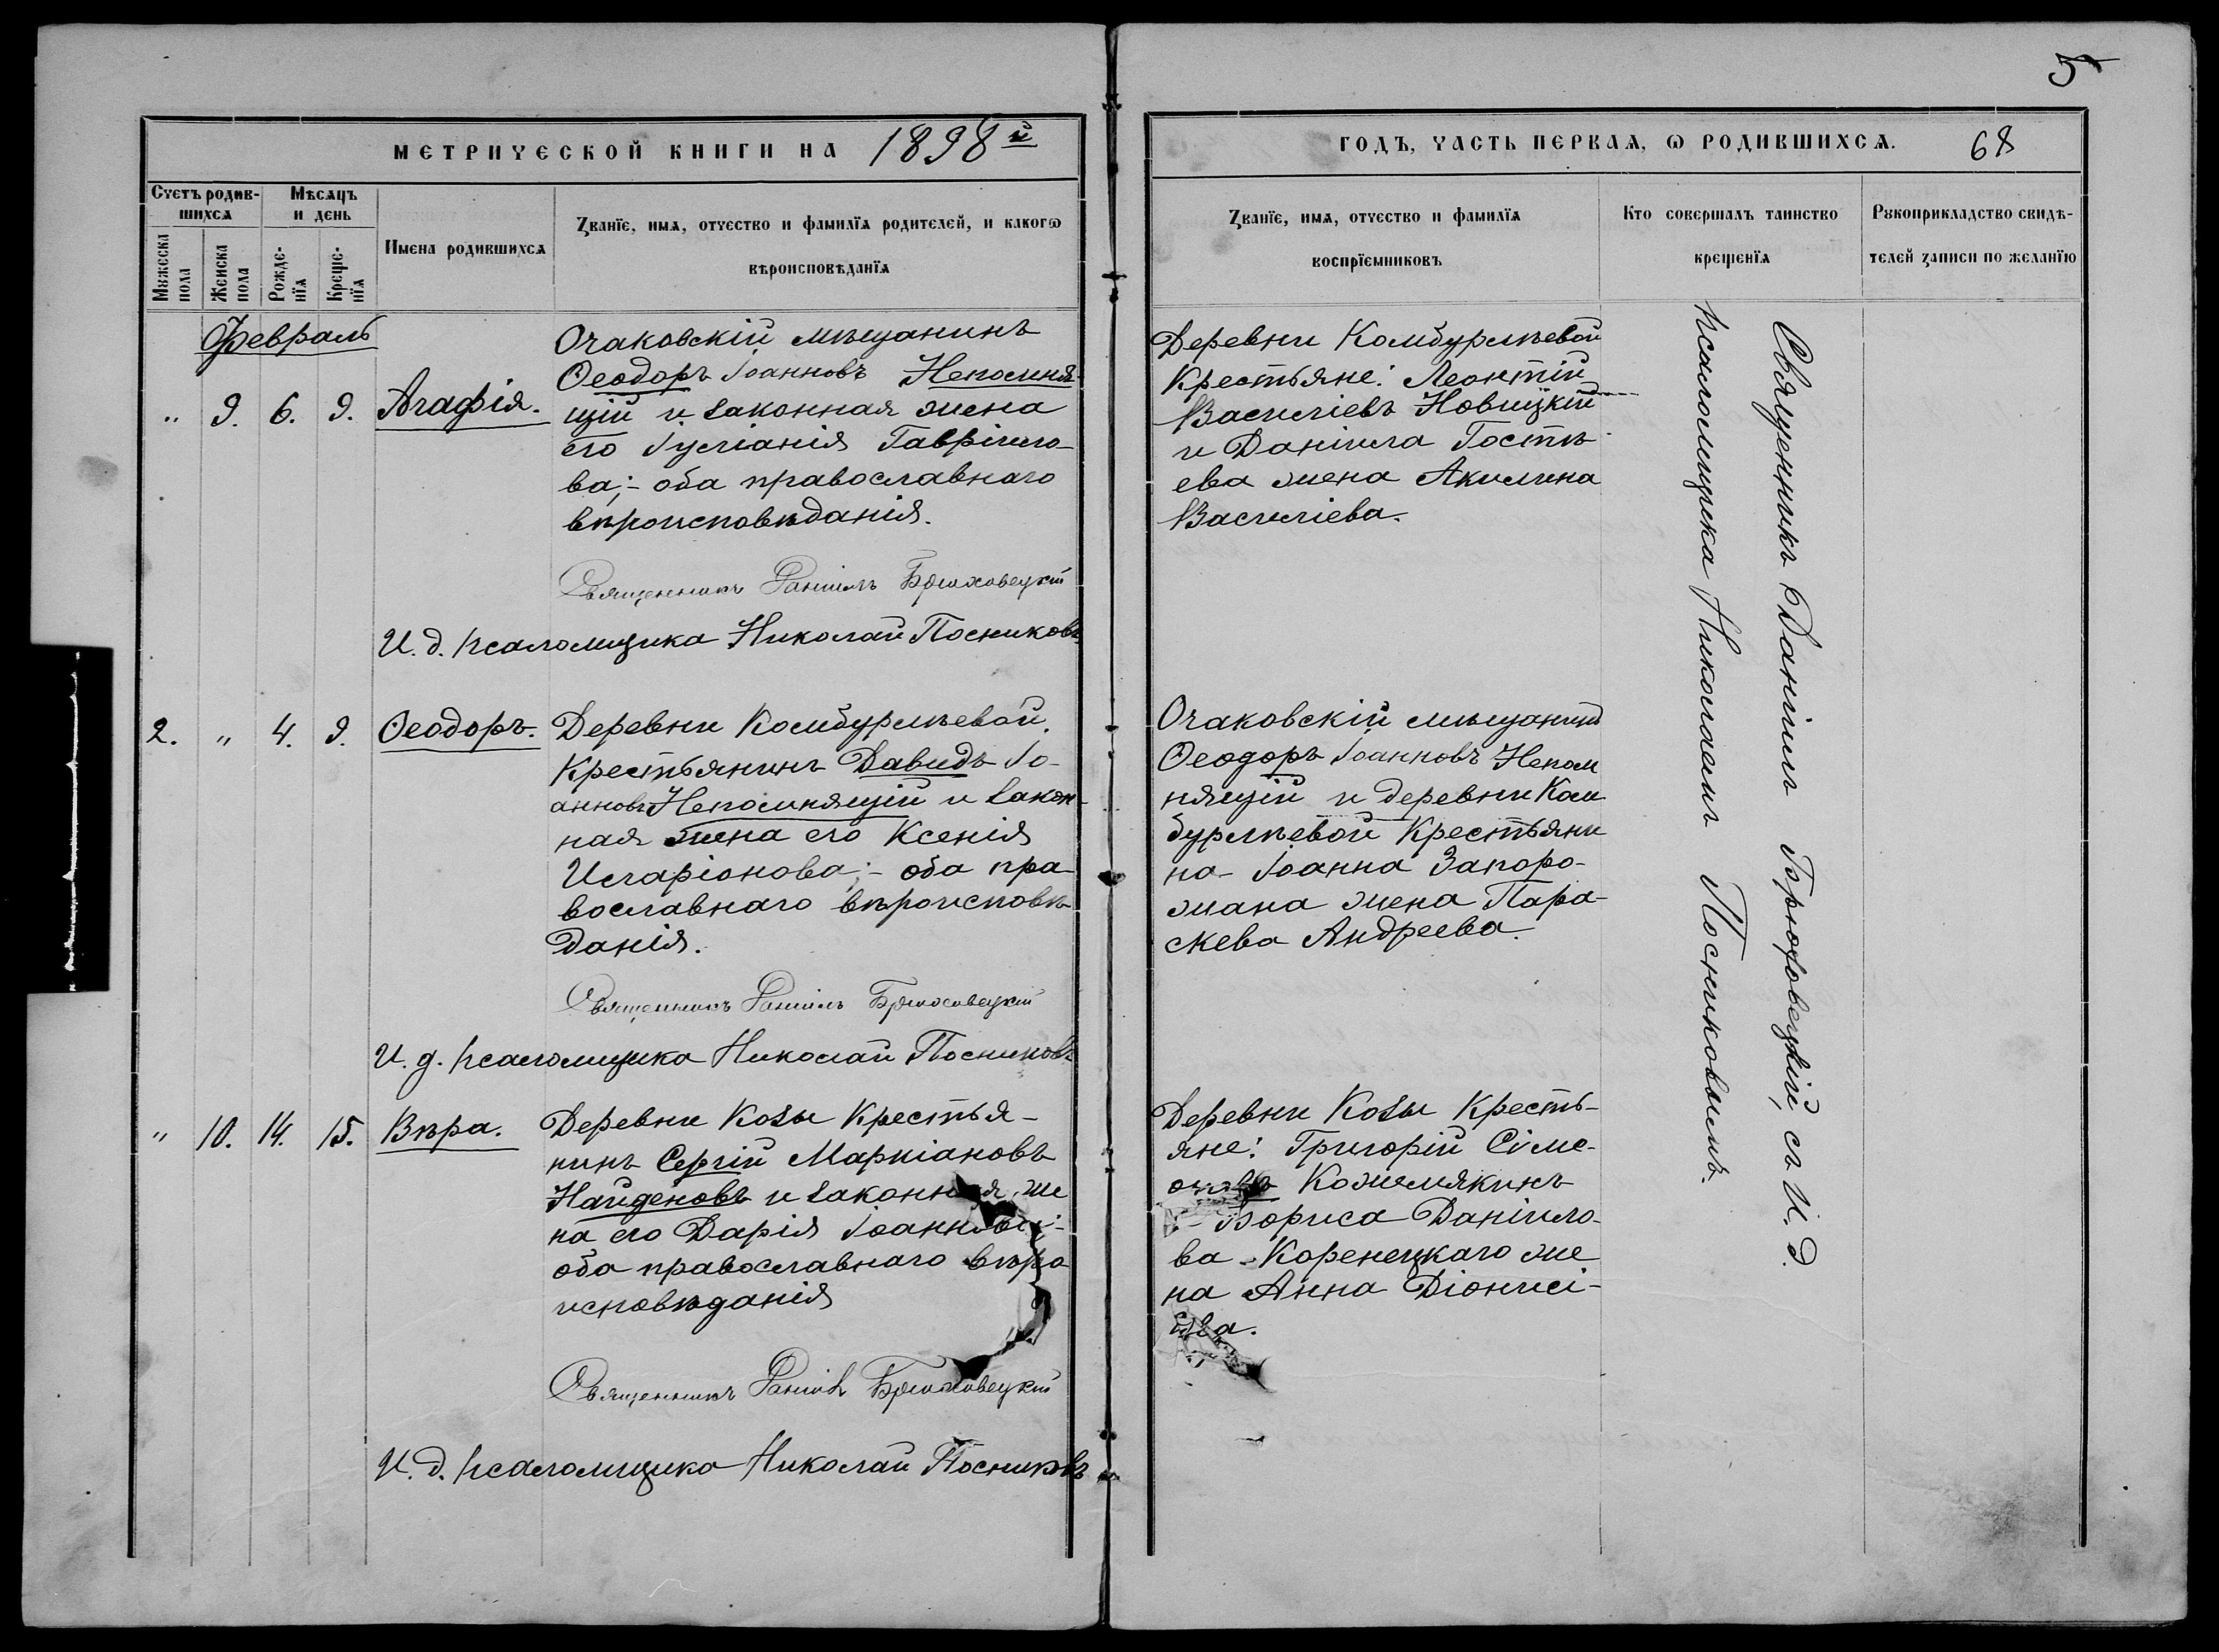 5
МЕТРИЧЕСКОЙ КНИГИ НА 1898й
ГОДЪ, ЧАСТЬ ПЕРВАЯ, Ѡ РОДИВШИХСѦ. 68
Счетъ родив-
шихсѧ
Мѣсѧцъ
и день
Мꙋжеска
пола
Женска
пола
Рожде-
нїѧ
Креще-
нїѧ
Имена родившихсѧ
Ꙁванїе, имѧ, отчество и фамилїѧ родителей, и какогѡ
вѣроисповѣданїѧ
Ꙁванїе, имѧ, отчество и фамилїѧ
воспрїемниковъ
Кто совершалъ таинство
крещенїѧ
Рꙋкоприкладство свидѣ-
телей ꙁаписи по желанїю
Февраль
" 9. 6. 9. Агафія.
Очаковскій мѣщанинъ
Ѳеодоръ Іоанновъ Непомня-
щій и законная жена
его Іуліанія Гавріило-
ва;- оба православнаго
вѣроисповѣданія.
Священникъ Даніилъ Брюховецкій
И. д. псаломщика Николай Посниковъ
Деревни Комбурлѣевой
Крестьяне: Леонтій
Василіевъ Новицкій
и Даніила Гостѣ-
ева жена Акилина
Василіева.
2. " 4. 9. Ѳеодоръ.
Деревни Комбурлѣевой.
Крестьянинъ Давидъ Іо-
анновъ Непомнящій и закон-
ная жена его Ксенія
Иларіонова;- оба пра-
вославнаго вѣроисповѣ
данія.
Священникъ Даніилъ Брюховецкій
И. д. псаломщика Николай Посниковъ
Очаковскій мѣщанинъ
Ѳеодоръ Іоанновъ Непом
нящій и деревни Ком
бурлѣевой Крестьяни
на Іоанна Запоро-
жана жена Пара-
скева Андреева.
" 10. 14. 15. Вѣра.
Деревни Козы Крестья-
нинъ Сергій Маркіановъ
Найденовъ и законная же
на его Дарія Іоаннова;-
оба православнаго вѣро
исповѣданія
Священникъ Даніилъ Брюховецкій
И. д. псаломщика Николай Посниковъ
Деревни Козы Кресть-
яне: Григорій Сѵме-
оновъ Кожемякинъ
Бориса Даніило-
ва Коренецкаго же
на Анна Діонисі-
ева.
Священникъ Даніилъ Брюховецкій, съ И. д.
псаломщика Николаемъ Посниковымъ.